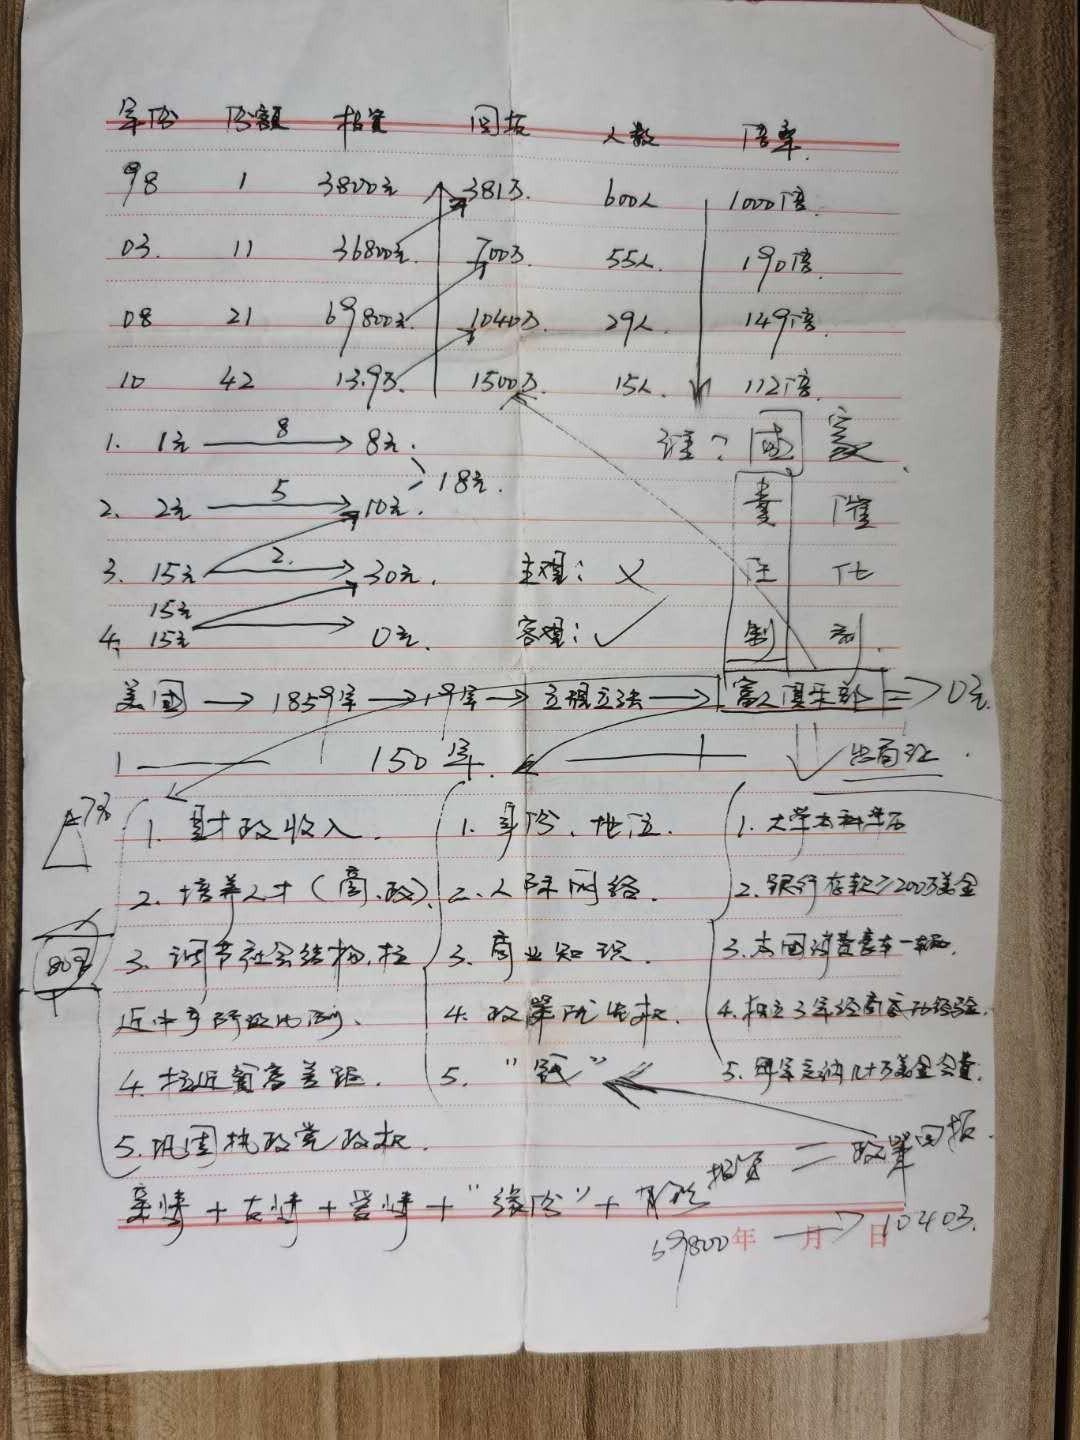 年份 份额 投资 回报 人数 倍率
98 1 3800元 381万 600人 1000倍
03. 11 36800元 700万 55人 190倍
08 21 69800元 1040万 29人 149倍
10 42 13.9万 1500万 15人 112倍
1. 1元 8 8元 谁? 国 家
18元
2. 2元 5 10元 责
3. 15元 2. 30元 主观: × 任
15元
4. 15元 0元 客观: ✓ 制
美国 → 1859年 → 19年 → 立规立法 → 富人俱乐部 => 0元
1 150年 出局
1. 财政收入. 1. 身份、地位. 1. 大学本科学历
2. 培养人才(商、政) 2. 人际网络. 2. 银行存款≥200万美金
80% 3. 调节社会结构,拉 3. 商业知识. 3. 本国消费豪车一辆.
近中产阶级比例、 4. 政策优先权. 4. 独立3年经商经验.
4. 拉近贫富差距. 5. "钱" 5. 每年交纳几十万美金会费.
5. 巩固执政党政权.
投资 = 政策回报
亲情 + 友情 + 爱情 + "缘份" +
69800 年 月 日 → 1040万